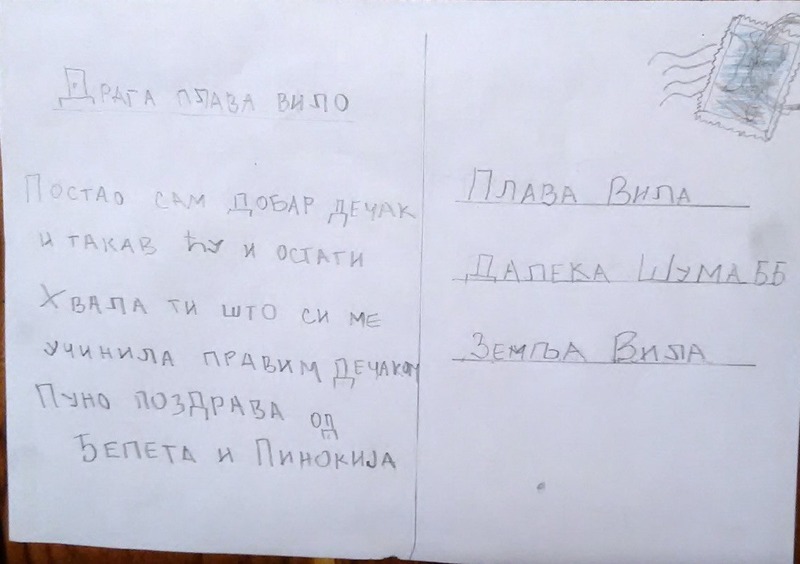 Драга плава вило
Постао сам добар дечак
и такав ћу и остати
Хвала ти што си ме
учинила правим дечаком
Пуно поздрава од
Ђепета и Пинокија
Плава Вила
Далека Шума ББ
Земља Вила